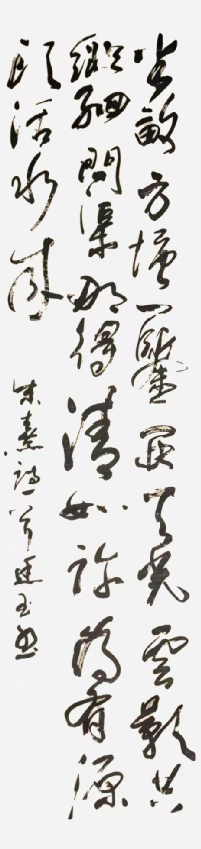 半畝方塘一鑒開天光雲影共
徘徊問渠那得清如許為有源
頭活水來
朱熹詩一首廷玉書